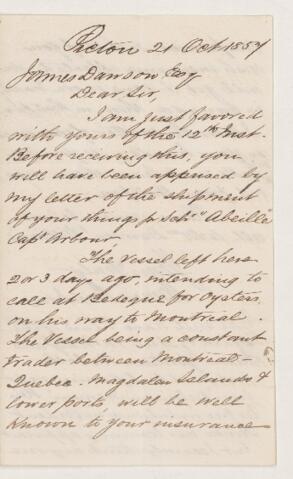 Pictou 21 Oct 1857
James Dawson Esq
Dear Sir,
I am just favored
with yours of the 12th Inst.
Before receiving this, you
will have been apprised by
my letter of the shipment
of your things per Schr "Abeille"
Capt Arbour,
The Vessel left here
2 or 3 day ago, intending to
call at Bedeque for Oysters,
on his way to Montreal.
The Vessel being a constant
trader between Montreal -
Quebec. Magdalen Islands &
lower ports, will be well
known to your insurance